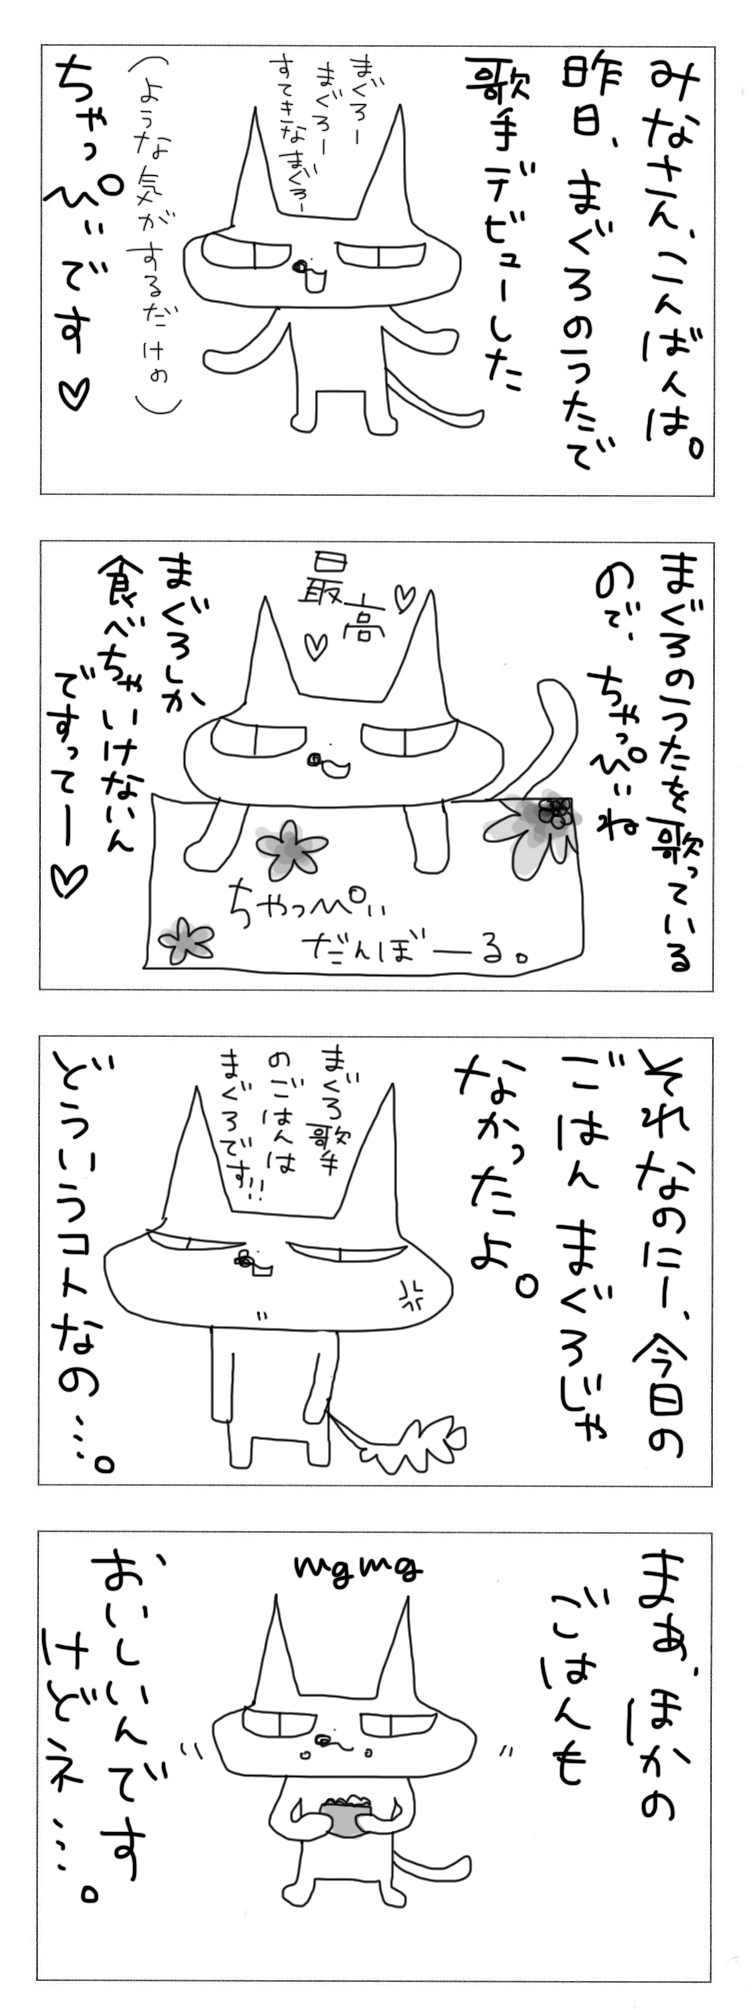 みなさん、こんばんは。
昨日、まぐろのうたで
歌手デビューした
まぐろー
まぐろー
すてきなまぐろー
(ような気がするだけの)
ちゃっぴぃです♡
まぐろのうたを歌っている
ので、ちゃっぴぃね
最高♡
♡
まぐろしか
食べちゃいけないん
ですってー♡
ちゃっぴぃ
だんぼーる。
それなのにー、今日の
ごはんまぐろじゃ
なかったよ。
まぐろ歌手
のごはんは
まぐろです!!
どういうコトなの…。
まぁ、ほかの
ごはんも
mgmg
おいしいんです
けどネ…。